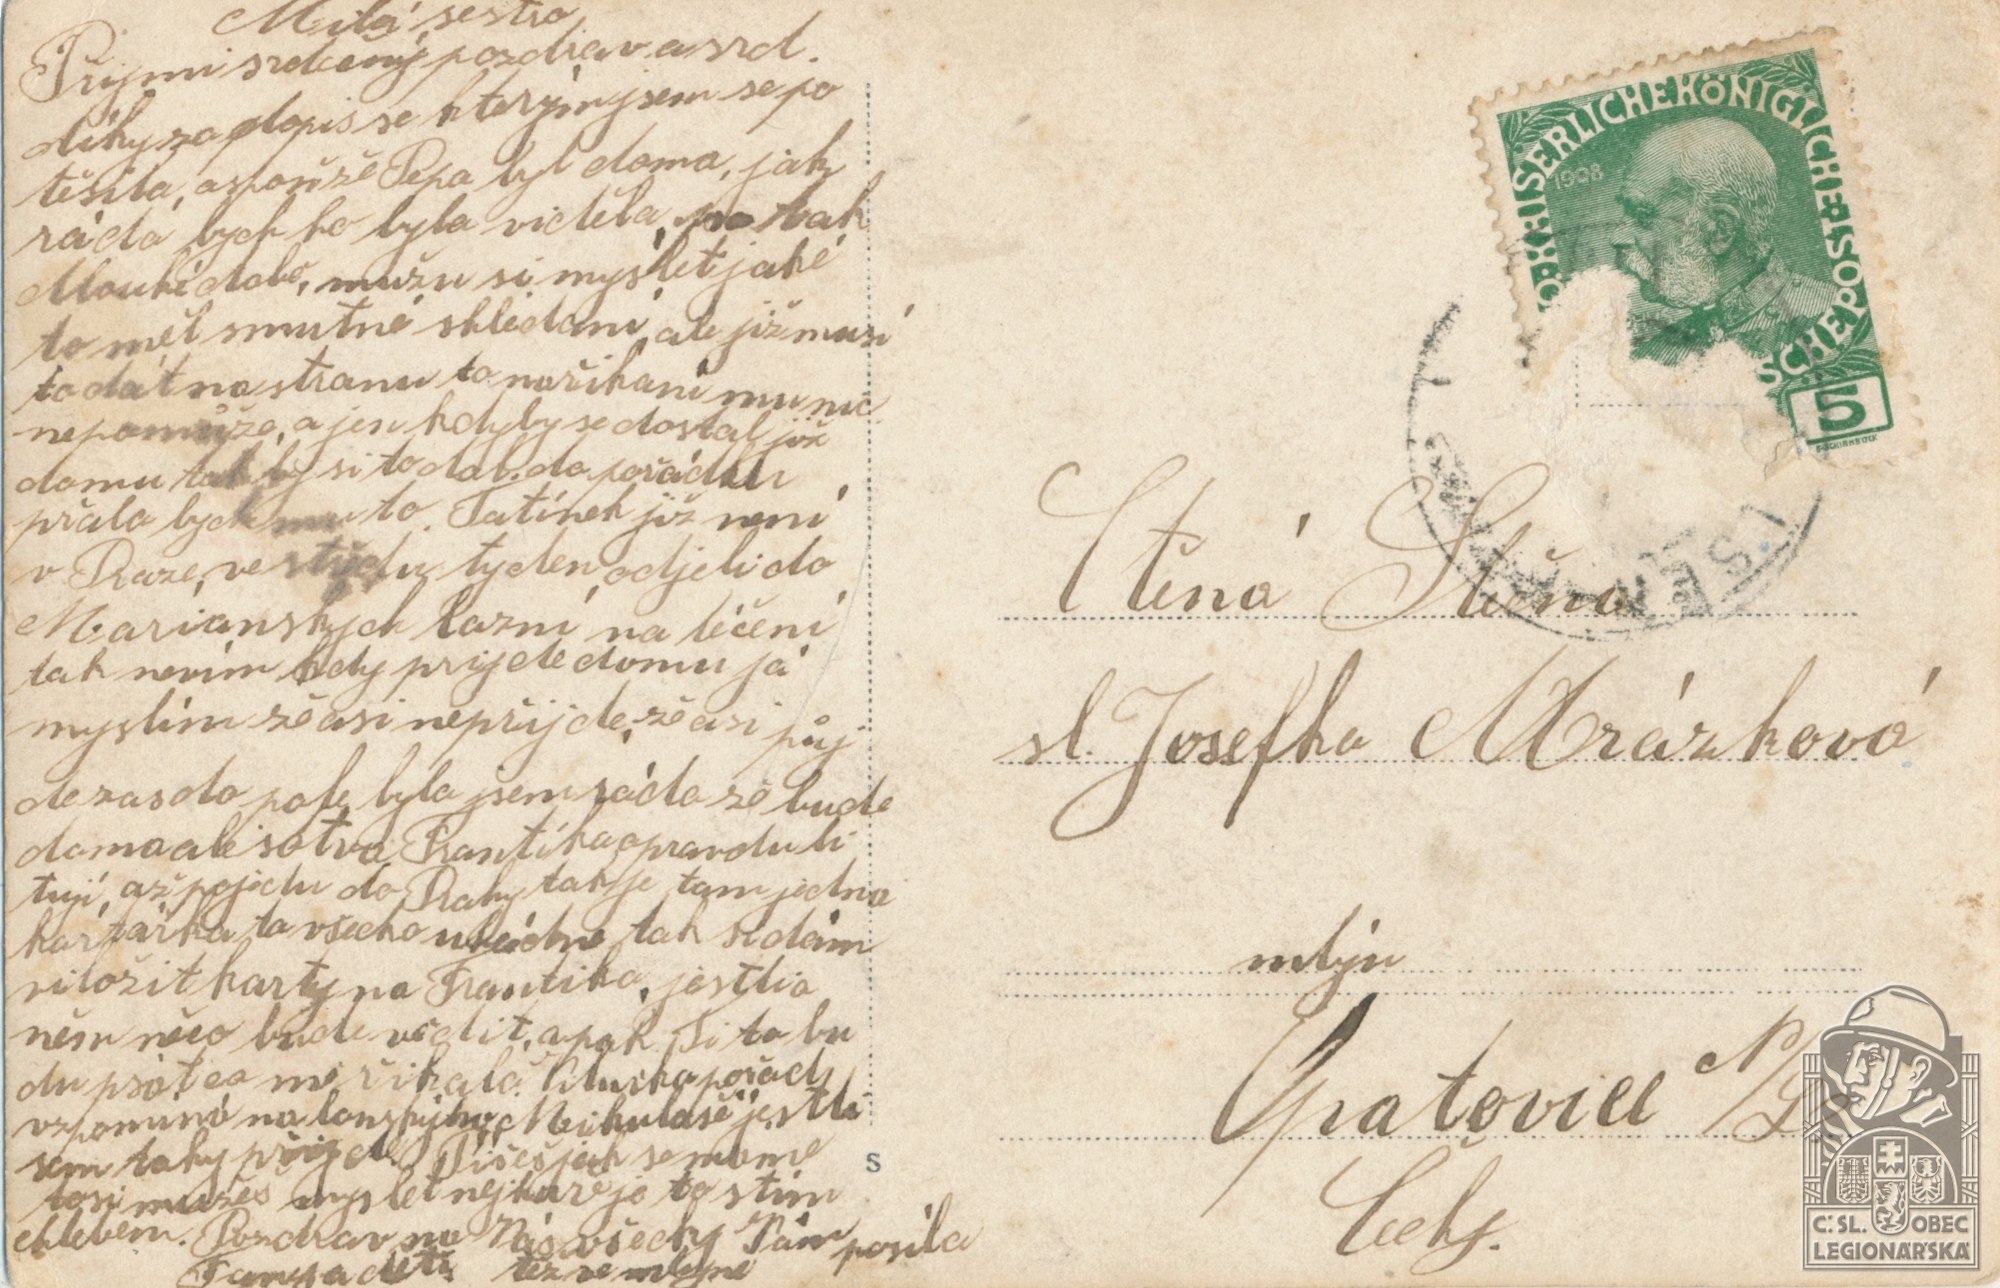 Milá sestro
Prijmi srdečný pozdrav a srd.
díky za dopis se kterým jsem se po
těsila, aspoň že Pepa byl doma, jak
ráda bych ho byla viděla, po tak
dlouhé době, mužu si myslet jaké
to měl smutné shledání, ale již musí
to dát na stranu to nařikaní mu nic
nepomůže, a jen kdyby se dostal již
domu tak by si to dal do pořádku
přala bych mu to. Tatínek již není
v Praze, ve středu tyden odjeli do
Mariánských lazní na léčení
tak nevím kdy prijde domu já
myslím že asi nepřijde, že asi půj
de zas do pole, byla jsem ráda že bude
doma ale sotva. Frantíka opravdu li
tuji, až pojedu do Prahy tak je tam jedna
kartářka ta všecko uhádne, tak si dám
viložit karty na Frantika, jestli o
něm něco bude vědit, a pak Ti to bu
du psát co mě řikala. pořád
vzpomíná na lonskýho Mikulaše jestli
sem taky přijde. Tišešjch se mame
to si mužeš myslet nejhurě je to s tím
chlebem. Pozdrav na Vás všecky Vám posíla
děti též ve mlejně
KAISERLICHEKÖNIGLICHE
1908
5
Ctěná Slečna
sl. Josefka Mrázková
mlýn
Opatovice N/L
Čechy.
S
Č. SL. OBEC
LEGIONÁŘSKÁ